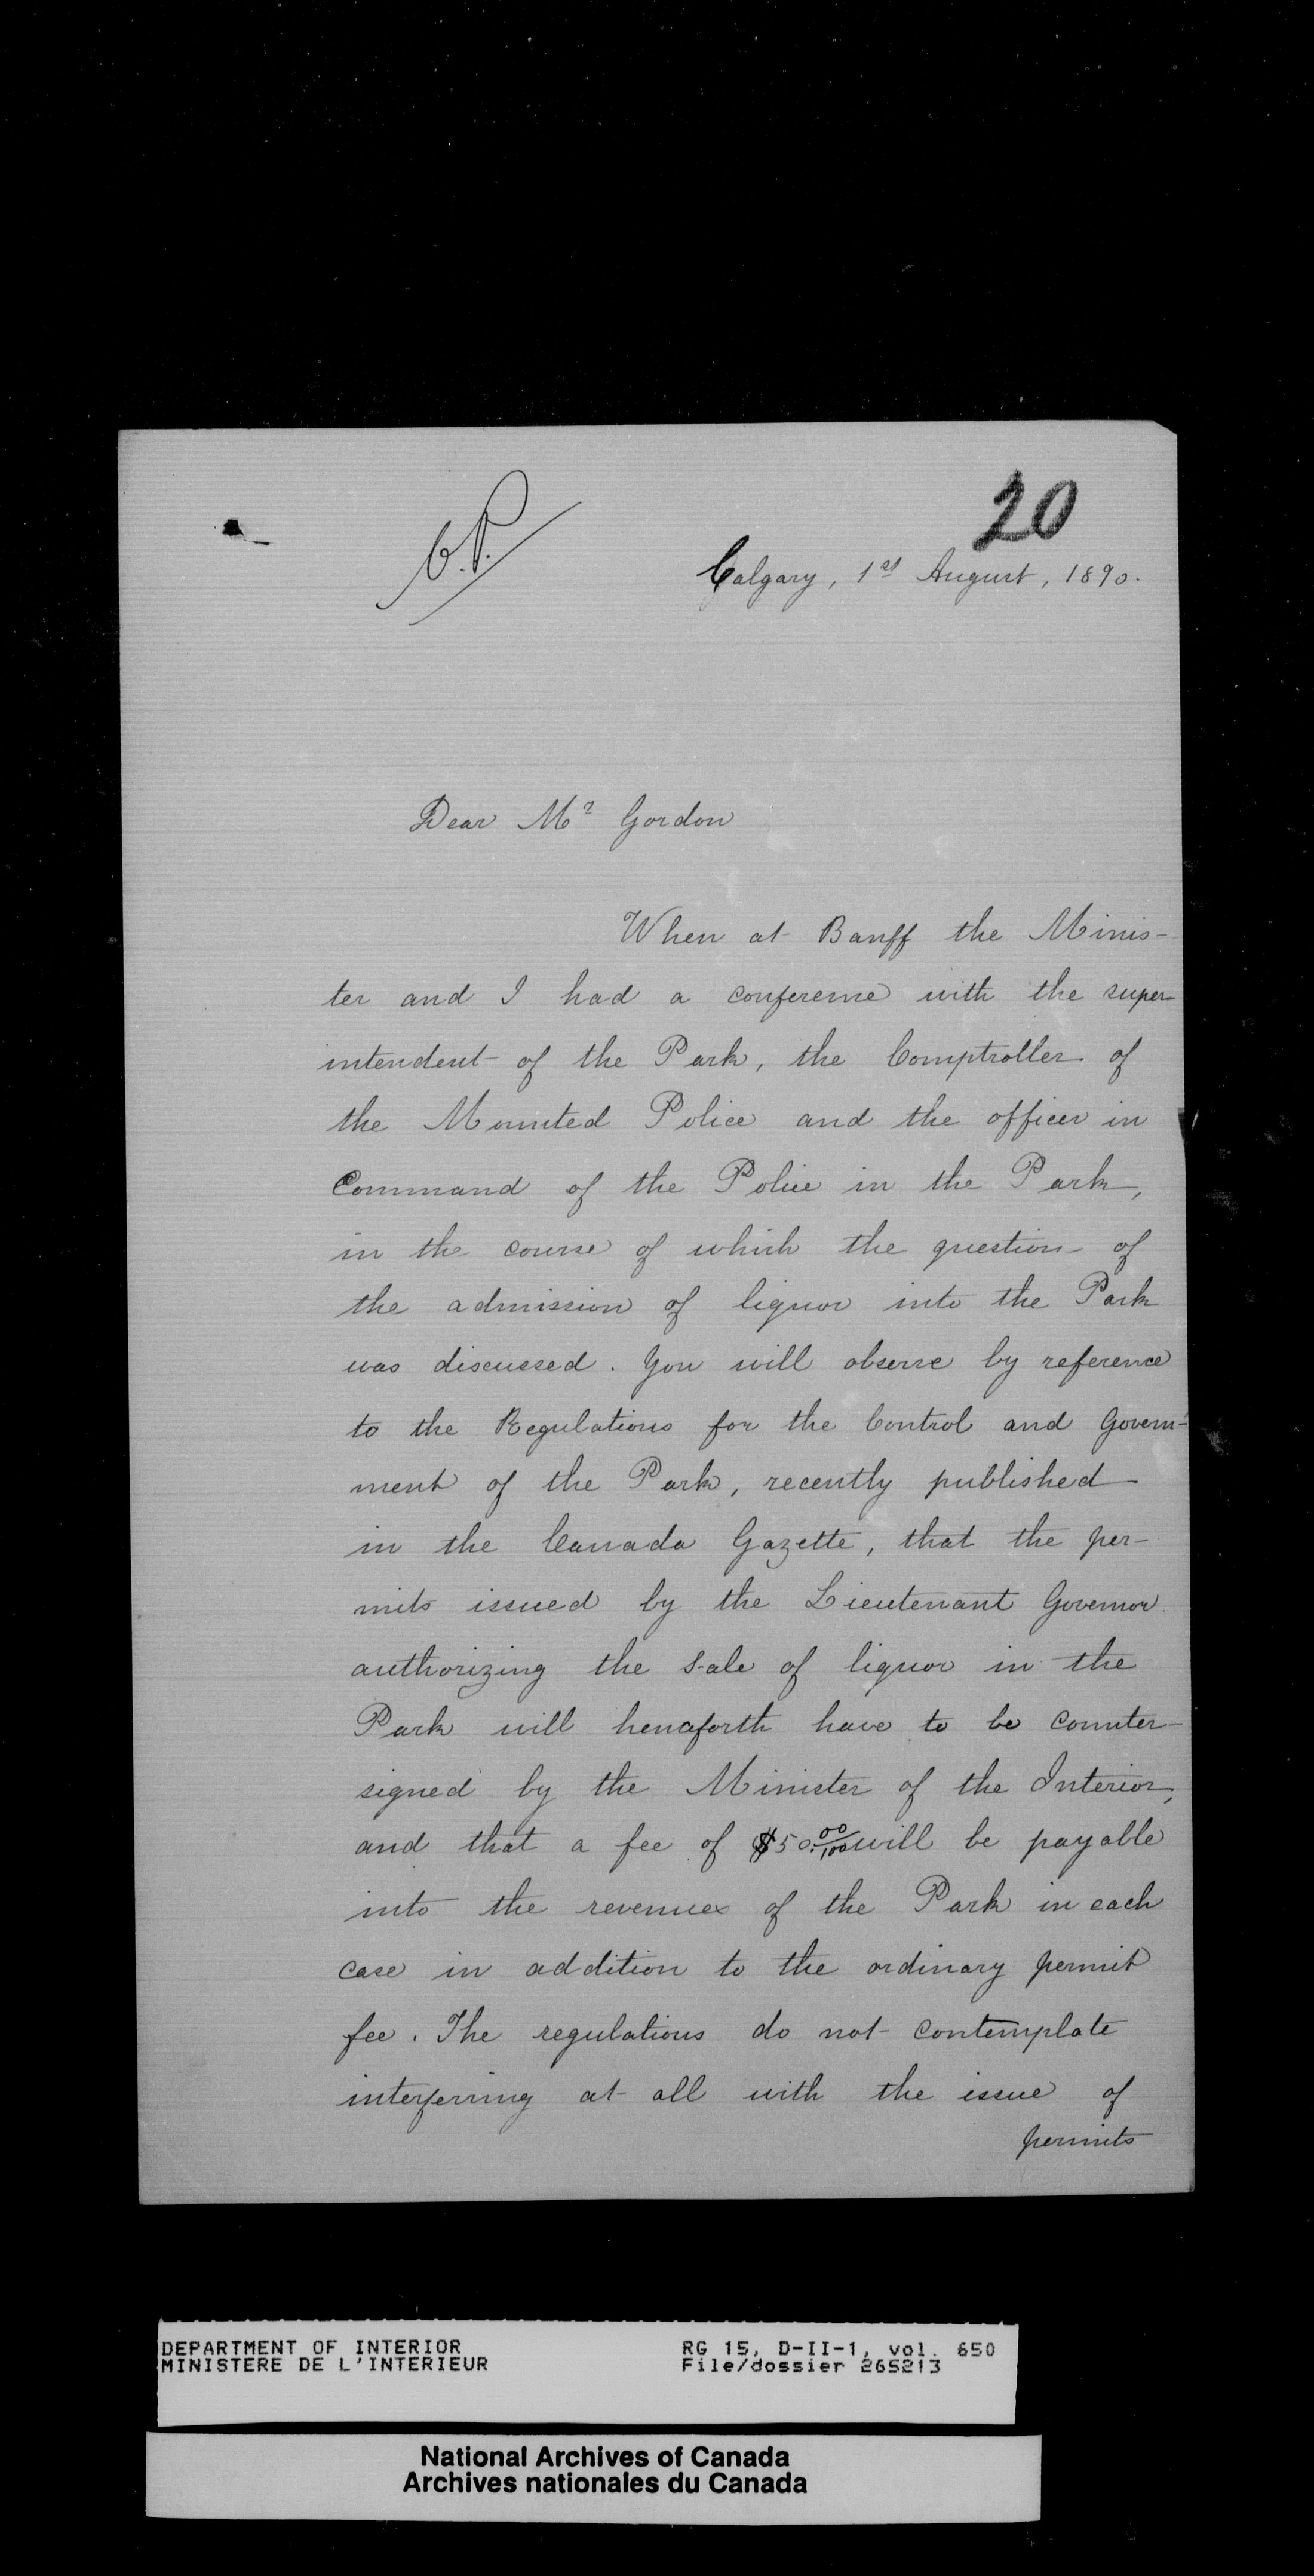 20
C.P.
Calgary, 1st August, 1890.
Dear Mr Gordon
When at Banff the Minis-
ter and I had a conference with the super-
intendent of the Park, the Comptroller of
the Mounted Police and the officer in
Command of the Police in the Park,
in the course of which the question of
the admission of liquor into the Park
was discussed. You will observe by reference
to the Regulations for the Control and Govern-
ment of the Park, recently published
in the Canada Gazette, that the per-
mits issued by the Lieutenant Governor
authorizing the sale of liquor in the
Park will henceforth have to be counter-
signed by the Minister of the Interior,
and that a fee of $50.00/100 will be payable
into the revenues of the Park in each
case in addition to the ordinary permit
fee. The regulations do not contemplate
interferring at all with the issue of
permits
DEPARTMENT OF INTERIOR RG 15, D-II-1, vol. 650
MINISTERE DE L'INTERIEUR File/dossier 265213
National Archives of Canada
Archives nationales du Canada